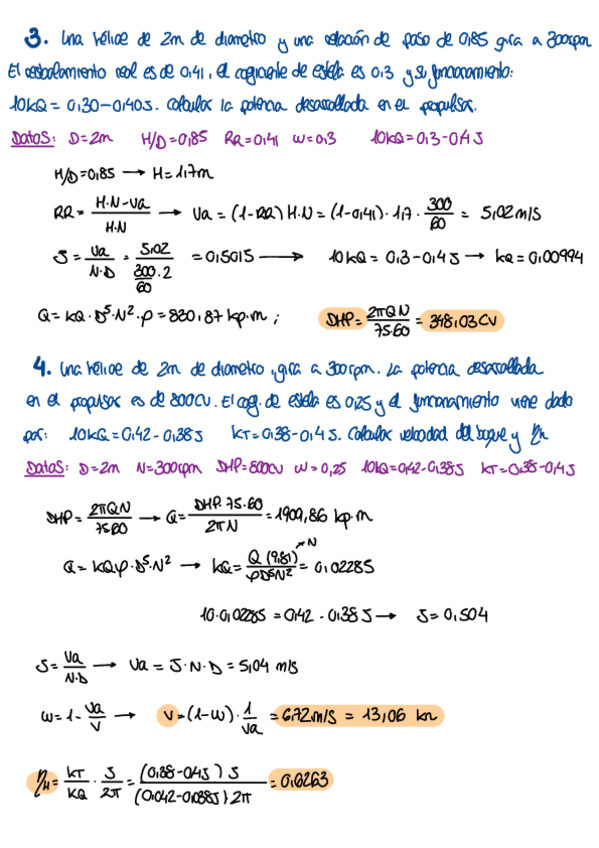 3. Una hélice de 2m de diametro y una relación de paso de 0,85 gira a 300rpm
El resbalamiento real es de 0,41, el coeficiente de estela es 0,3 y su funcionamiento:
10kQ = 0,30-0,40J. Calcular la potencia desarrollada en el propulsor.
Datos: D=2m H/D=0,85 RR=0,41 w=0,3 10kQ=0,3-0,4J
H/D=0,85 → H=1,7m
RR = H·N-Va / H·N → Va = (1-RR) H·N = (1-0,41)·1,7·300/60 = 5,02m/s
J = Va / N·D = 5,02 / 300/60·2 = 0,5015 → 10kQ = 0,3-0,4J → kQ = 0,00994
Q = kQ·D⁵·N²·ρ = 830,87 kp·m ; DHP = 2πQN / 75·60 = 348,03CV
4. Una hélice de 2m de diametro, gira a 300rpm. La potencia desarrollada
en el propulsor es de 800CV. El coef. de estela es 0,25 y el funcionamiento viene dado
por: 10kQ = 0,42-0,38J KT=0,38-0,4J. Calcular velocidad del buque y ηH
Datos: D=2m N=300rpm DHP=800CV w=0,25 10kQ=0,42-0,38J KT=0,38-0,4J
DHP = 2πQN / 75·60 → Q = DHP·75·60 / 2πN = 1909,86 kp·m
Q = kQ ρ·D⁵·N² → kQ = Q (9,81) → N / ρD⁵N² = 0,02285
10·0,02285 = 0,42-0,38J → J = 0,504
J = Va / N·D → Va = J·N·D = 5,04 m/s
w = 1 - Va / V → V = (1-w)·1 / Va = 6,72m/s = 13,06 kn
ηH = KT / KQ · J / 2π = (0,38-0,4J) J / (0,042-0,038J) 2π = 0,6263